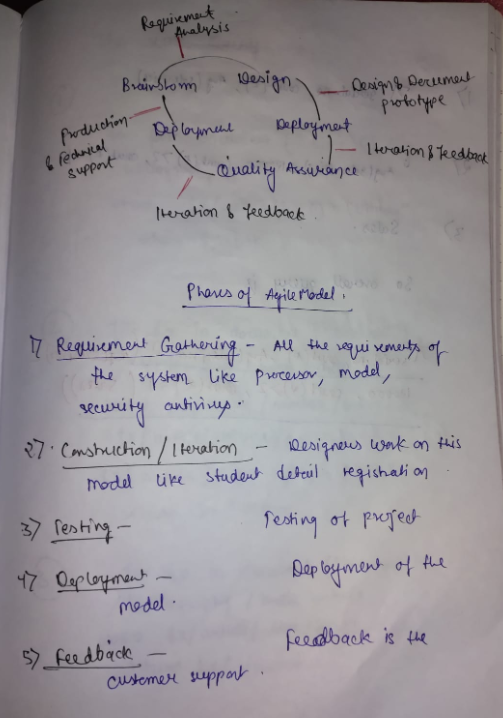 Requirement
Analysis
Brainstorm Design
Design & Document
prototype
Production
& Technical
support
Deployment Deployment
Iteration & Feedback
Quality Assurance
Iteration & Feedback.
Phases of Agile Model.
1) Requirement Gathering - All the requirements of
the system like processor, model,
security antivirus.
2) Construction / Iteration - Designers work on this
model like student detail registration.
3) Testing - Testing of project
4) Deployment - Deployment of the
model.
5) Feedback - Feedback is the
customer support.